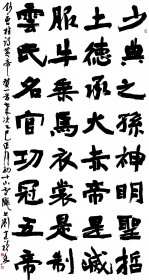 少典之孫神明聖哲
土德承火赤帝是滅
服牛乘馬衣裳是制
雲氏名官功冠五帝